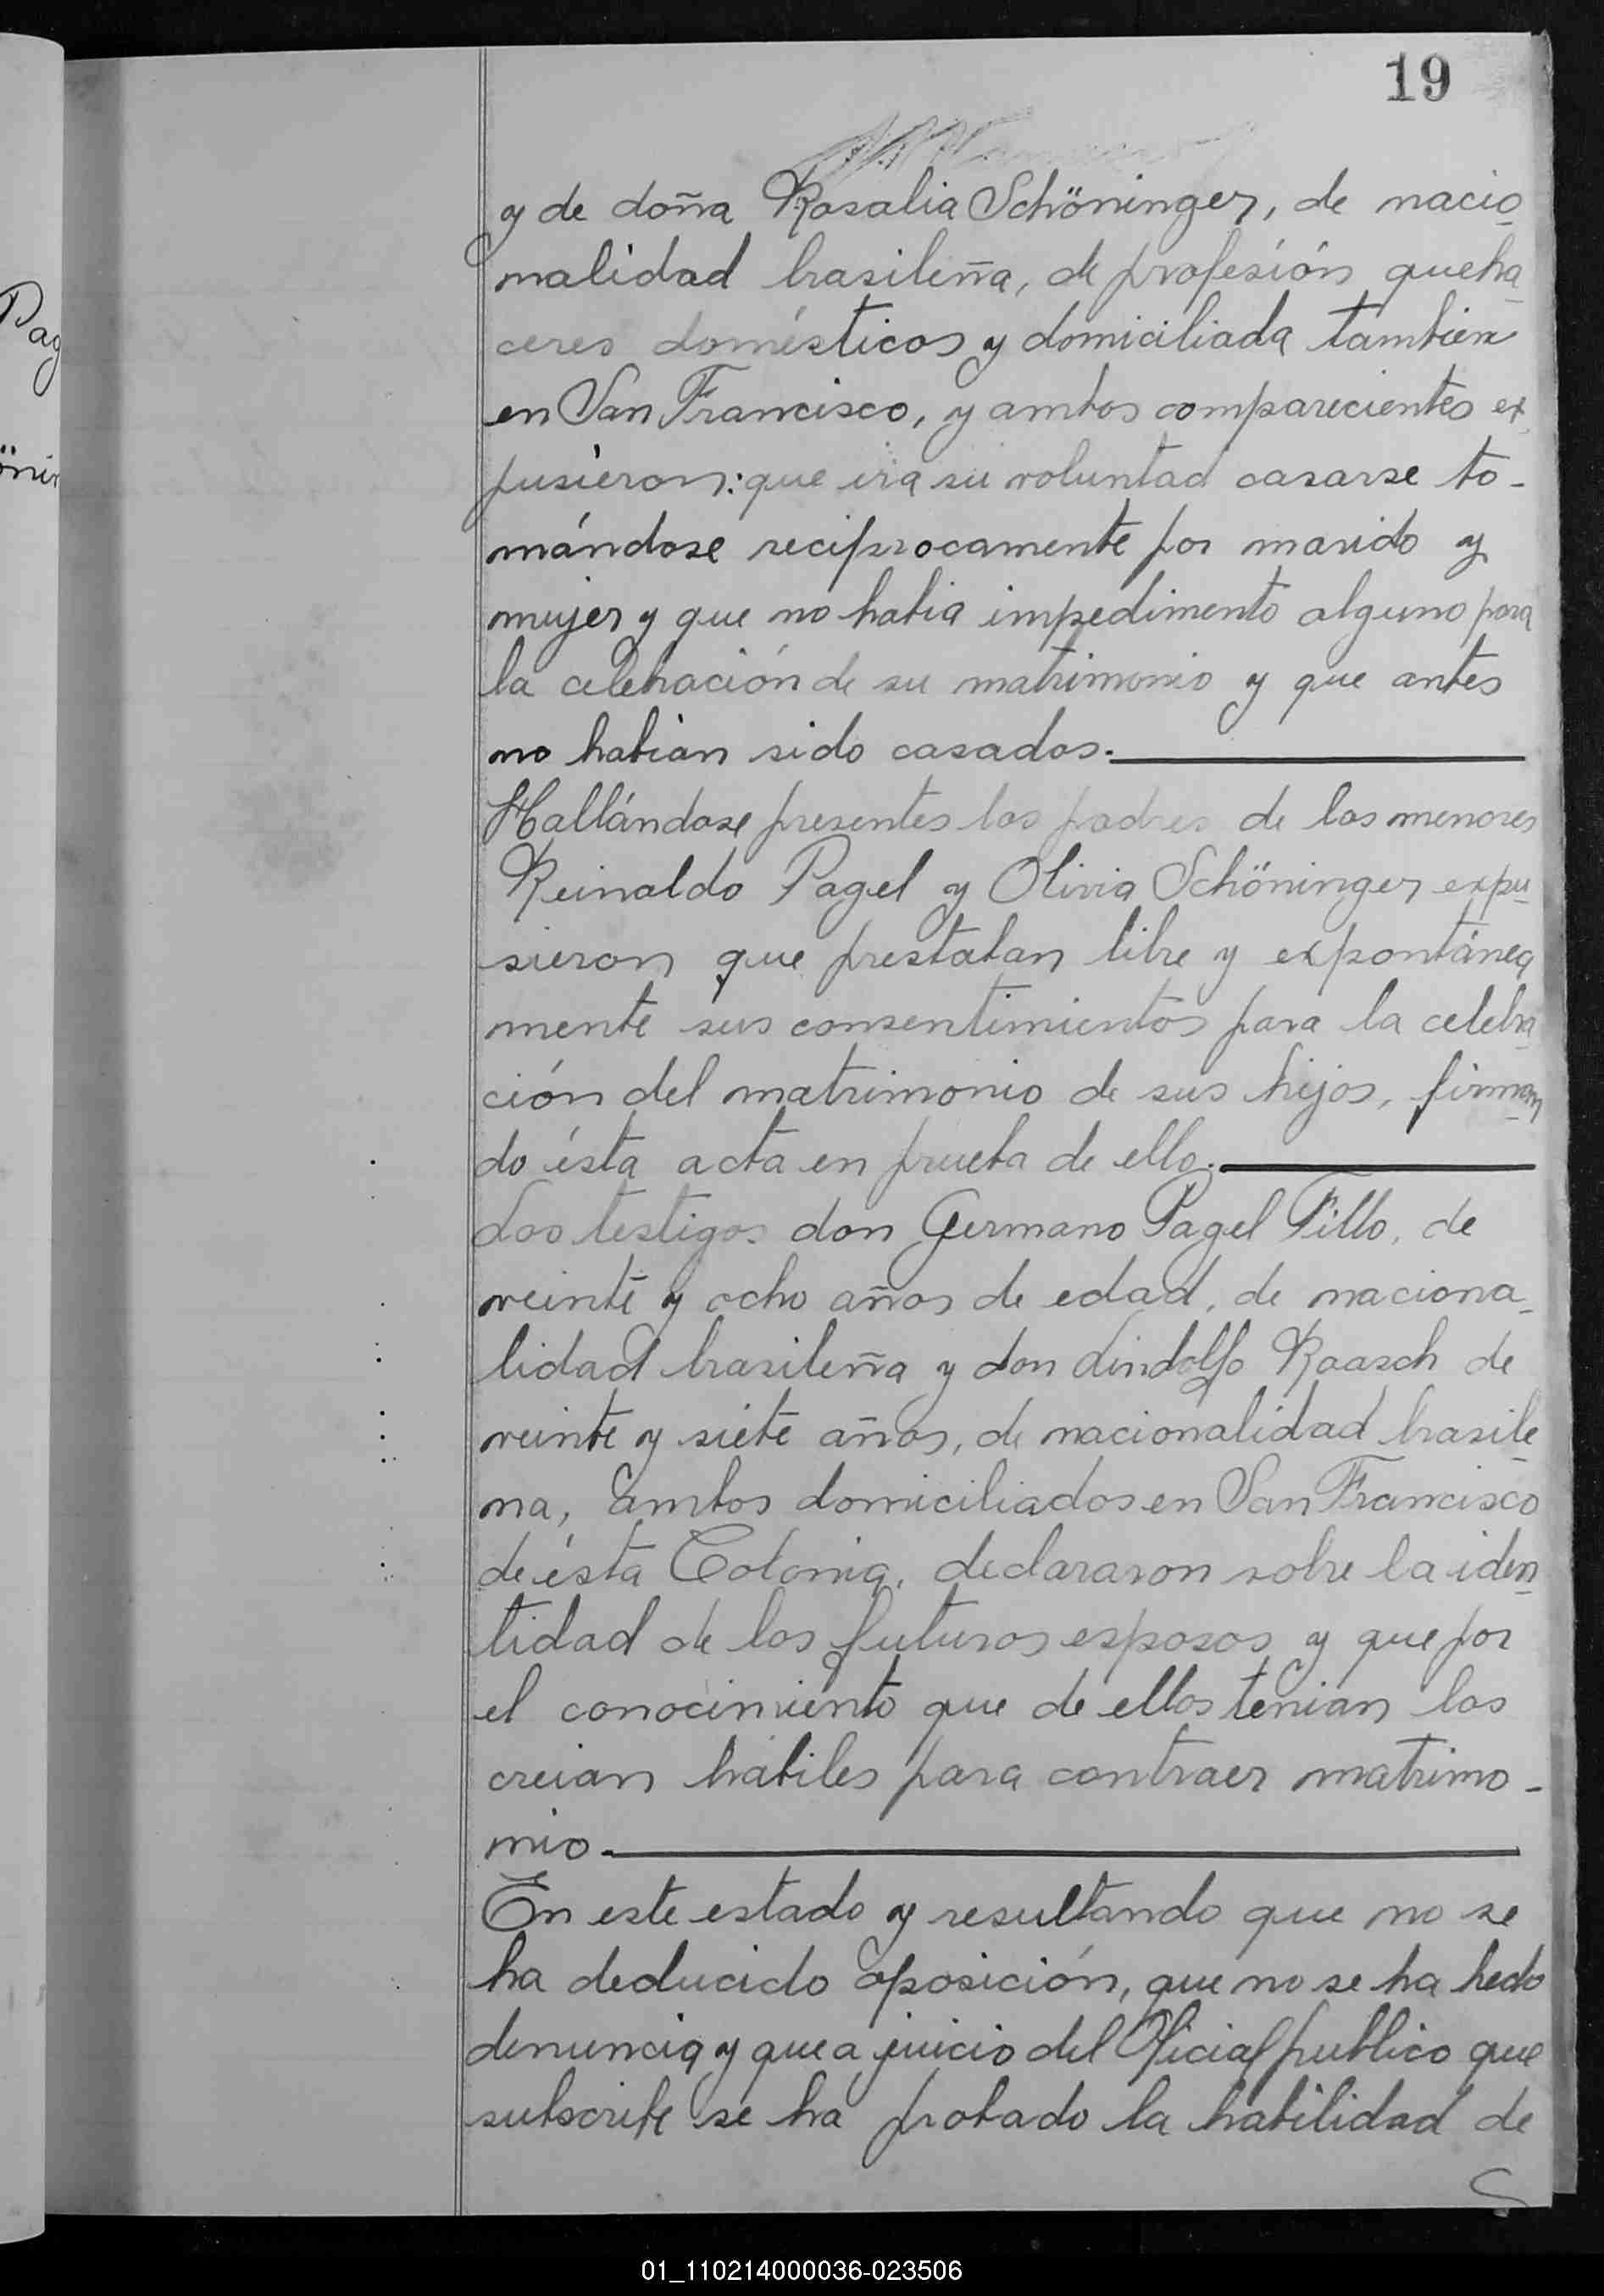 19
y de doña Rosalia Schöninger, de nacio-
nalidad brasileña, de profesión queha-
ceres domésticos y domiciliada tambien
en San Francisco, y ambos comparecientes ex-
pusieron: que era su voluntad casarse to-
mándose reciprocamente por marido y
mujer y que no habia impedimento alguno para
la celebración de su matrimonio y que antes
no habian sido casados.
Hallándose presentes los padres de los menores
Reinaldo Pagel y Olivia Schöninger expu-
sieron que prestaban libre y expontánea
mente sus consentimientos para la celebra-
ción del matrimonio de sus hijos, firman-
do ésta acta en prueba de ello.
Los testigos don Germano Pagel Fillo, de
veinte y ocho años de edad, de naciona-
lidad brasileña y don Lindolfo Raasch de
veinte y siete años, de nacionalidad brasile-
na, ambos domiciliados en San Francisco
de ésta Colonia, declararon sobre la iden-
tidad de los futuros esposos y que por
el conocimiento que de ellos tenian los
creian hábiles para contraer matrimo-
nio.
En este estado y resultando que no se
ha deducido oposición, que no se ha hecho
denuncia y que a juicio del Oficial publico que
subscribe se ha probado la habilidad de
Pag
öni
01_110214000036-023506